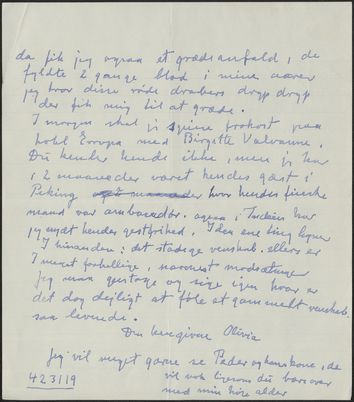 da fik jeg ogsaa et grædeanfald, de
fyldte 2 gange blod i mine aarer
jeg tror disse røde draabers dryp dryp
der fik mig til at græde.
I morgen skal jeg spise frokost paa
hotel Evropa med Birgitte Valvanne.
Du kender hende ikke, men jeg har
i 2 maaneder været hendes gæst i
Peking hvor hendes finske
mand var ambassadør. ogsaa i Indien har
jeg nydt hendes gæstfrihed. I den ene ting ligner
I hinanden: det stadige venskab. ellers er
I meget forskellige, nærmest modsætninger
Jeg maa gentage og sige igen hvor er
det dog dejligt at føle et gammelt venskab
saa levende.
Din hengivne Olivia
Jeg vil meget gerne se Peder og hans kone, de
vil nok ligesom du bære over
med min høje alder
423119